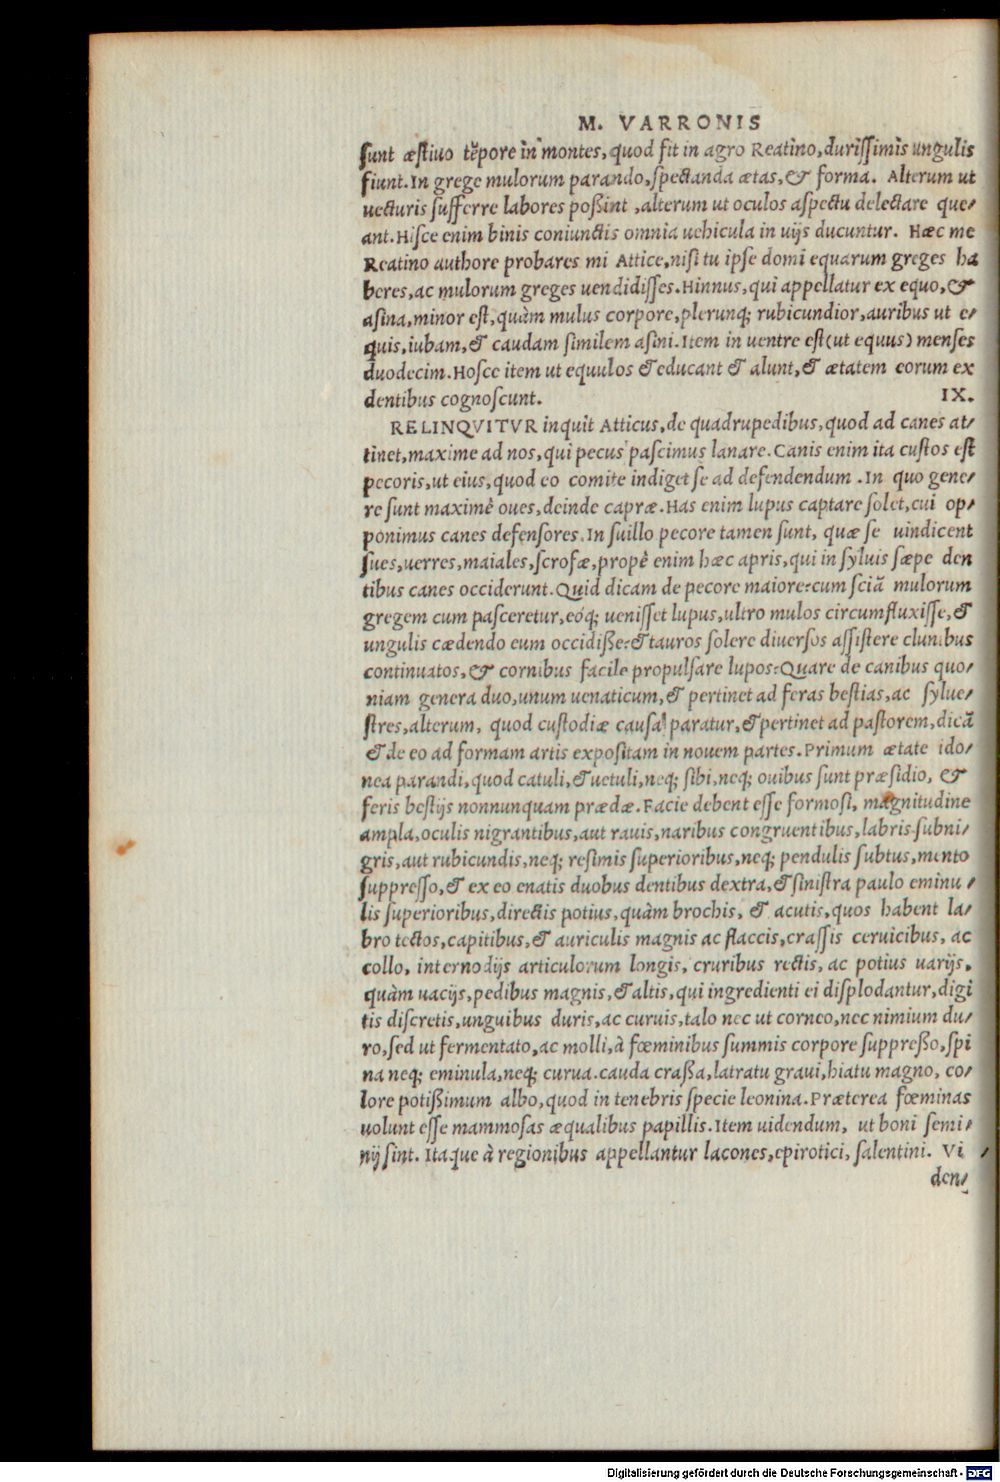 M. VARRONIS
sunt æstiuo tēpore in montes, quod fit in agro Reatino, durissimis ungulis
fiunt. In grege mulorum parando, spectanda ætas, & forma. Alterum ut
uecturis sufferre labores poßint, alterum ut oculos aspectu delectare que/
ant. Hisce enim binis coniunctis omnia uehicula in uijs ducuntur. Hæc me
Reatino authore probares mi Attice, nisi tu ipse domi equarum greges ha
beres, ac mulorum greges uendidisses. Hinnus, qui appellatur ex equo, &
asina, minor est, quàm mulus corpore, plerunq; rubicundior, auribus ut e/
quis, iubam, & caudam similem asini. Item in uentre est (ut equus) menses
duodecim. Hosce item ut equulos & educant & alunt, & ætatem eorum ex
dentibus cognoscunt. IX.
RELINQVITVR inquit Atticus, de quadrupedibus, quod ad canes at/
tinet, maxime ad nos, qui pecus pascimus lanare. Canis enim ita custos est
pecoris, ut eius, quod eo comite indiget se ad defendendum. In quo gene/
re sunt maximè oues, deinde capræ. Has enim lupus captare solet, cui op/
ponimus canes defensores. In suillo pecore tamen sunt, quæ se uindicent
sues, uerres, maiales, scrofæ, propè enim hæc apris, qui in syluis sæpe den
tibus canes occiderunt. Quid dicam de pecore maiore? cum sciā mulorum
gregem cum pasceretur, eóq; uenisset lupus, ultro mulos circumfluxisse, &
ungulis cædendo eum occidiße? & tauros solere diuersos assistere clunibus
continuatos, & cornibus facile propulsare lupos? Quare de canibus quo/
niam genera duo, unum uenaticum, & pertinet ad feras bestias, ac sylue/
stres, alterum, quod custodiæ causa paratur, & pertinet ad pastorem, dicā
& de eo ad formam artis expositam in nouem partes. Primum ætate ido/
nea parandi, quod catuli, & uetuli, neq; sibi, neq; ouibus sunt præsidio, &
feris bestijs nonnunquam prædæ. Facie debent esse formosi, magnitudine
ampla, oculis nigrantibus, aut rauis, naribus congruentibus, labris subni/
gris, aut rubicundis, neq; resimis superioribus, neq; pendulis subtus, mento
suppresso, & ex eo enatis duobus dentibus dextra, & sinistra paulo eminu/
lis superioribus, directis potius, quàm brochis, & acutis, quos habent la/
bro tectos, capitibus, & auriculis magnis ac flaccis, crassis ceruicibus, ac
collo, internodijs articulorum longis, cruribus rectis, ac potius uarijs,
quàm uacijs, pedibus magnis, & altis, qui ingredienti ei displodantur, digi
tis discretis, unguibus duris, ac curuis, talo nec ut corneo, nec nimium du/
ro, sed ut fermentato, ac molli, à fœminibus summis corpore suppreßo, spi
na neq; eminula, neq; curua. cauda craßa, latratu graui, hiatu magno, co/
lore potißimum albo, quod in tenebris specie leonina. Præterea fœminas
uolunt esse mammosas æqualibus papillis. Item uidendum, ut boni semi/
nij sint. Itaque à regionibus appellantur lacones, epirotici, salentini. Vi/
den/
Digitalisierung gefördert durch die Deutsche Forschungsgemeinschaft - DFG